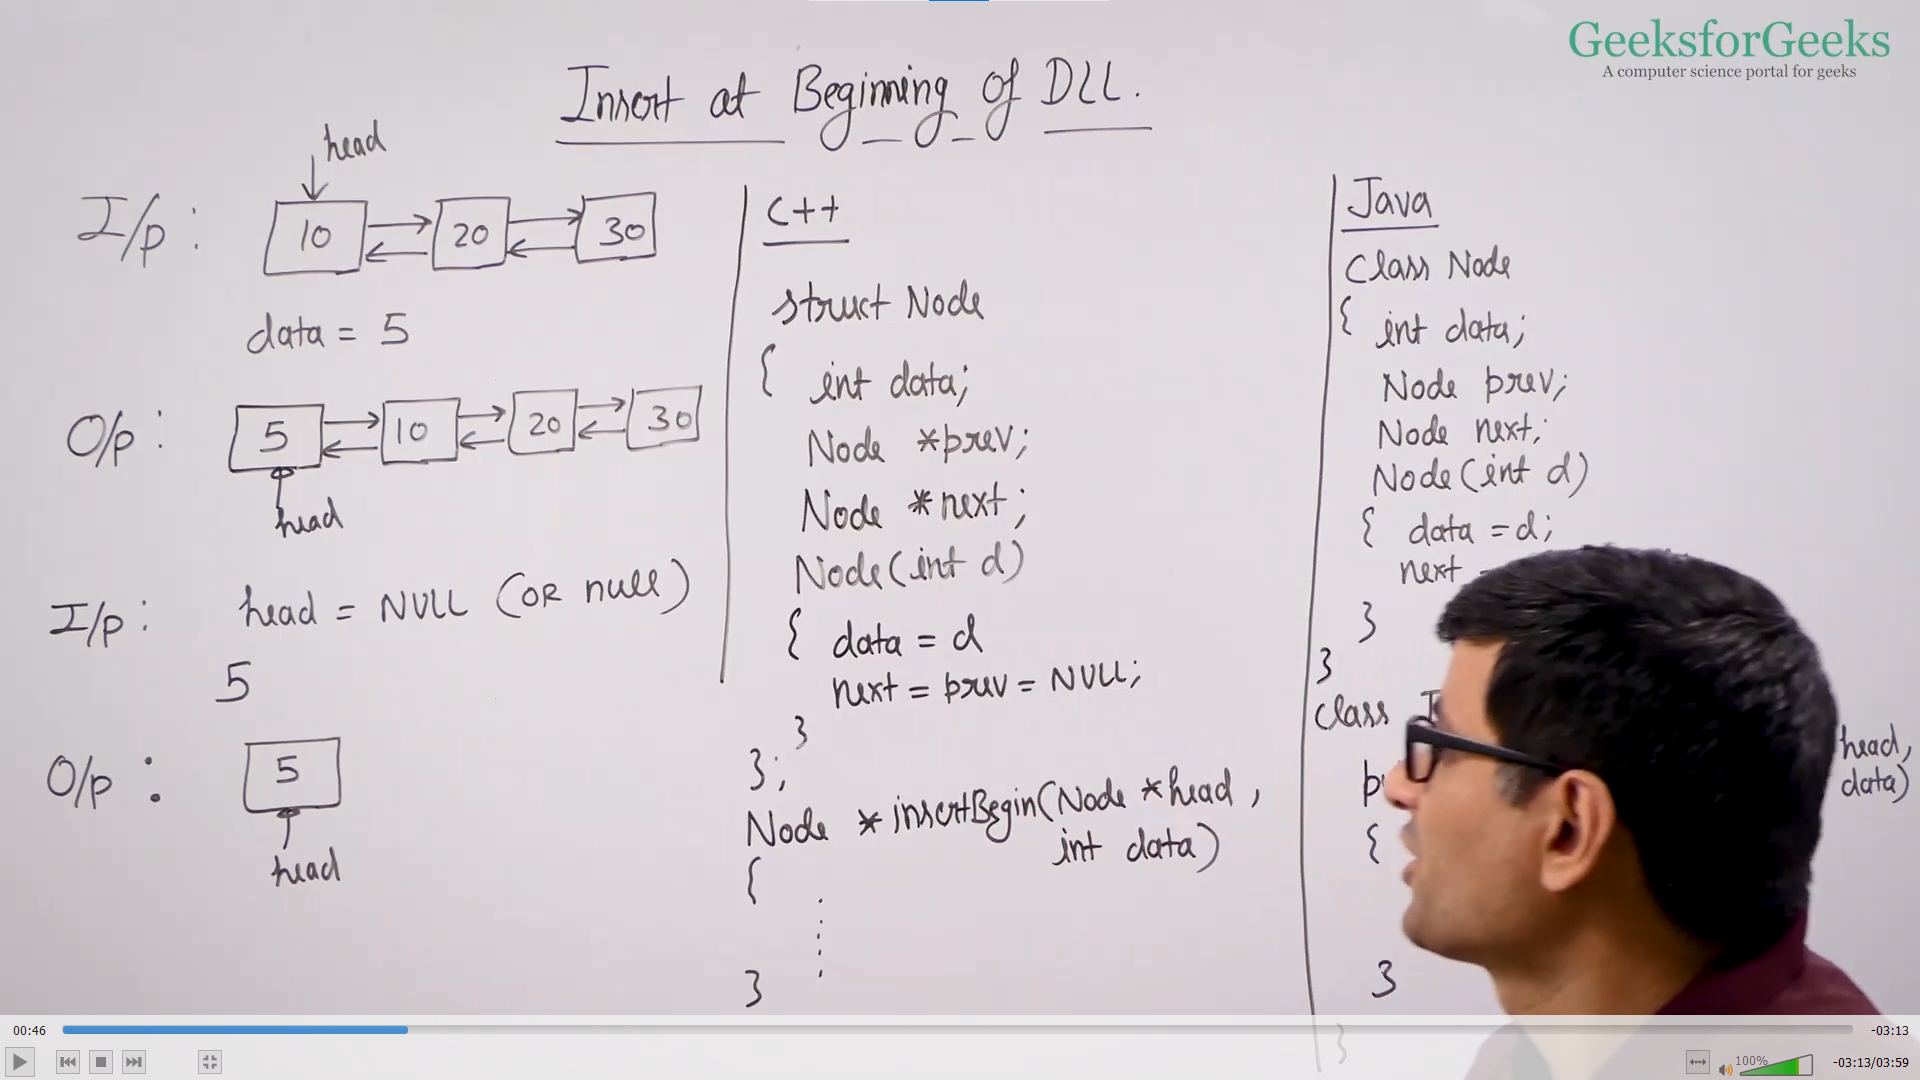 GeeksforGeeks
A computer science portal for geeks
Insert at Beginning of DLL.
head
I/p :
10
20
30
data = 5
O/p :
5
10
20
30
head
I/p : head = NULL (OR null)
5
O/p :
5
head
C++
struct Node
{ int data;
Node *prev;
Node *next;
Node(int d)
{ data = d
next = prev = NULL;
}
};
Node *insertBegin(Node *head,
int data)
{
}
Java
class Node
{ int data;
Node prev;
Node next;
Node(int d)
{ data = d;
next
}
}
class
head,
data)
{
}
}
00:46
-03:13
100%
-03:13/03:59